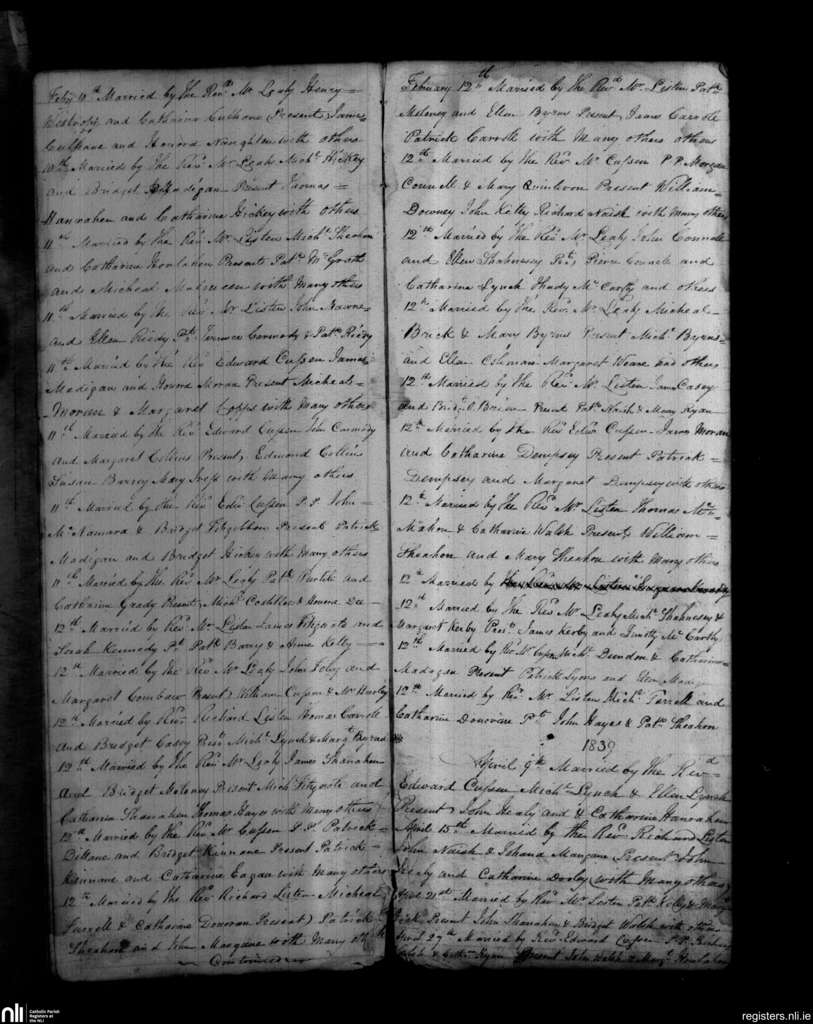 Feby 11th Married by the Revd Mr Leahy Henry
Westropp and Catharine Culhane Presents James
Culhane and Honora Naughton with others
10th Married by the Revd Mr Leahy Michl Hickey
and Bridget Madigan Present Thomas
Hanrahan and Catharine Hickey with others
11th Married by the Revd Mr Listen Michl Sheahan
and Catharine Houlahan Presents Patk McGrath
and Micheal with Many others
11th Married by the Revd Mr Listen John
and Ellen Reidy Pts Terrence Carmody & Patk Reidy
11th Married by the Revd Edward Cussen James
Madigan and Honora Moran Present Micheal
& Margaret Copps with Many others
11th Married by the Revd Edward Cussen John Carmody
and Margaret Collins Present, Edmond Collins
Susan Barry Mary with Many others
11th Married by the Revd Edwd Cussen P.P. John
McNamara & Bridget Fitzgibbon Present Patrick
Madigan and Bridget with Many others
11th Married by the Revd Mr Leahy Patk and
Catharine Grady Present, Michl Costelloe & Honora
12th Married by Revd Mr Listen James Fitzgerald and
Sarah Kennedy Pt Patk Barry & Anne Kelly
12th Married by the Revd Mr Leahy John Foley and
Margaret Present William Cussen & Mr Hurley
12th Married by Revd Richard Listen Thomas Carroll
and Bridget Casey Prests Michl Lynch & Margt
12th Married by the Revd Mr Leahy James Shanahan
and Bridget Moloney Present Michl and
Catharine Shanahan Thomas Hayes with Many others
12th Married by the Revd Mr Cussen P.P. Patrick
and Bridget Kinnane Present Patrick
Kinnane and Catharine Eagan with Many others
12th Married by the Revd Richard Listen Micheal
& Catharine Donovan Present Patrick
Sheahan and John Mangane with Many others
Continued
February 12th Married by the Revd Mr Listen Patk
Moloney and Ellen Byrns Present, James Carroll
Patrick Carroll with Many others others
12th Married by the Revd Mr Cussen P.P. Morgan
Connell & Mary Quinlivan Present William
Downey John Kelly Richard Naish with Many others
12th Married by the Revd Mr Leahy John Connell
and Ellen Shahnessy Pts, Pierce Connell and
Catharine Lynch Thady McCarthy and others
12th Married by the Revd Mr Leahy Micheal
Brick & Mary Byrns Present Michl Byrns
and Ellen Coleman Margaret and others
12th Married by the Revd Mr Listen James Casey
and Bridget Brien Present Patk Naish & Mary Ryan
12th Married by the Revd Edwd Cussen James Moran
and Catharine Dempsey Present Patrick
Dempsey and Margaret Dempsey with others
12th Married by the Revd Mr Listen Thomas Mc
Mahon & Catharine Walsh Presents William
Sheahan and Mary Sheahan with Many others
12th Married by
12th Married by the Revd Mr Leahy Michl Shahnessy &
Margaret Kerby Prest James Kerby and Timothy McCarthy
12th Married by Rev Mr Cussen Michl Dundon & Catharine
Madigan Present Patrick Lyons and Ellen
12th Married by Revd Mr Listen Michl Ferrell and
Catharine Donovan Pts John Hayes & Patk Sheahan
1839
April 9th Married by the Revd
Edward Cussen Michl Lynch & Ellen
Present, John Healy and & Catharine Hanrahan
April 15th Married by the Revd Richard Listen
John Naish & Johana Mangane Present John
Healy and Catharine Dooley with Many others
April 21st Married by Revd Mr Listen Patk Kelly &
Present John Shanahan & Bridget Walsh with others
April 29th Married by Revd Edward Cussen P.P.
& Cathn Ryan Present John Walsh & Margt Houlahan
nli
Catholic Parish
Registers at
the NLI
registers.nli.ie